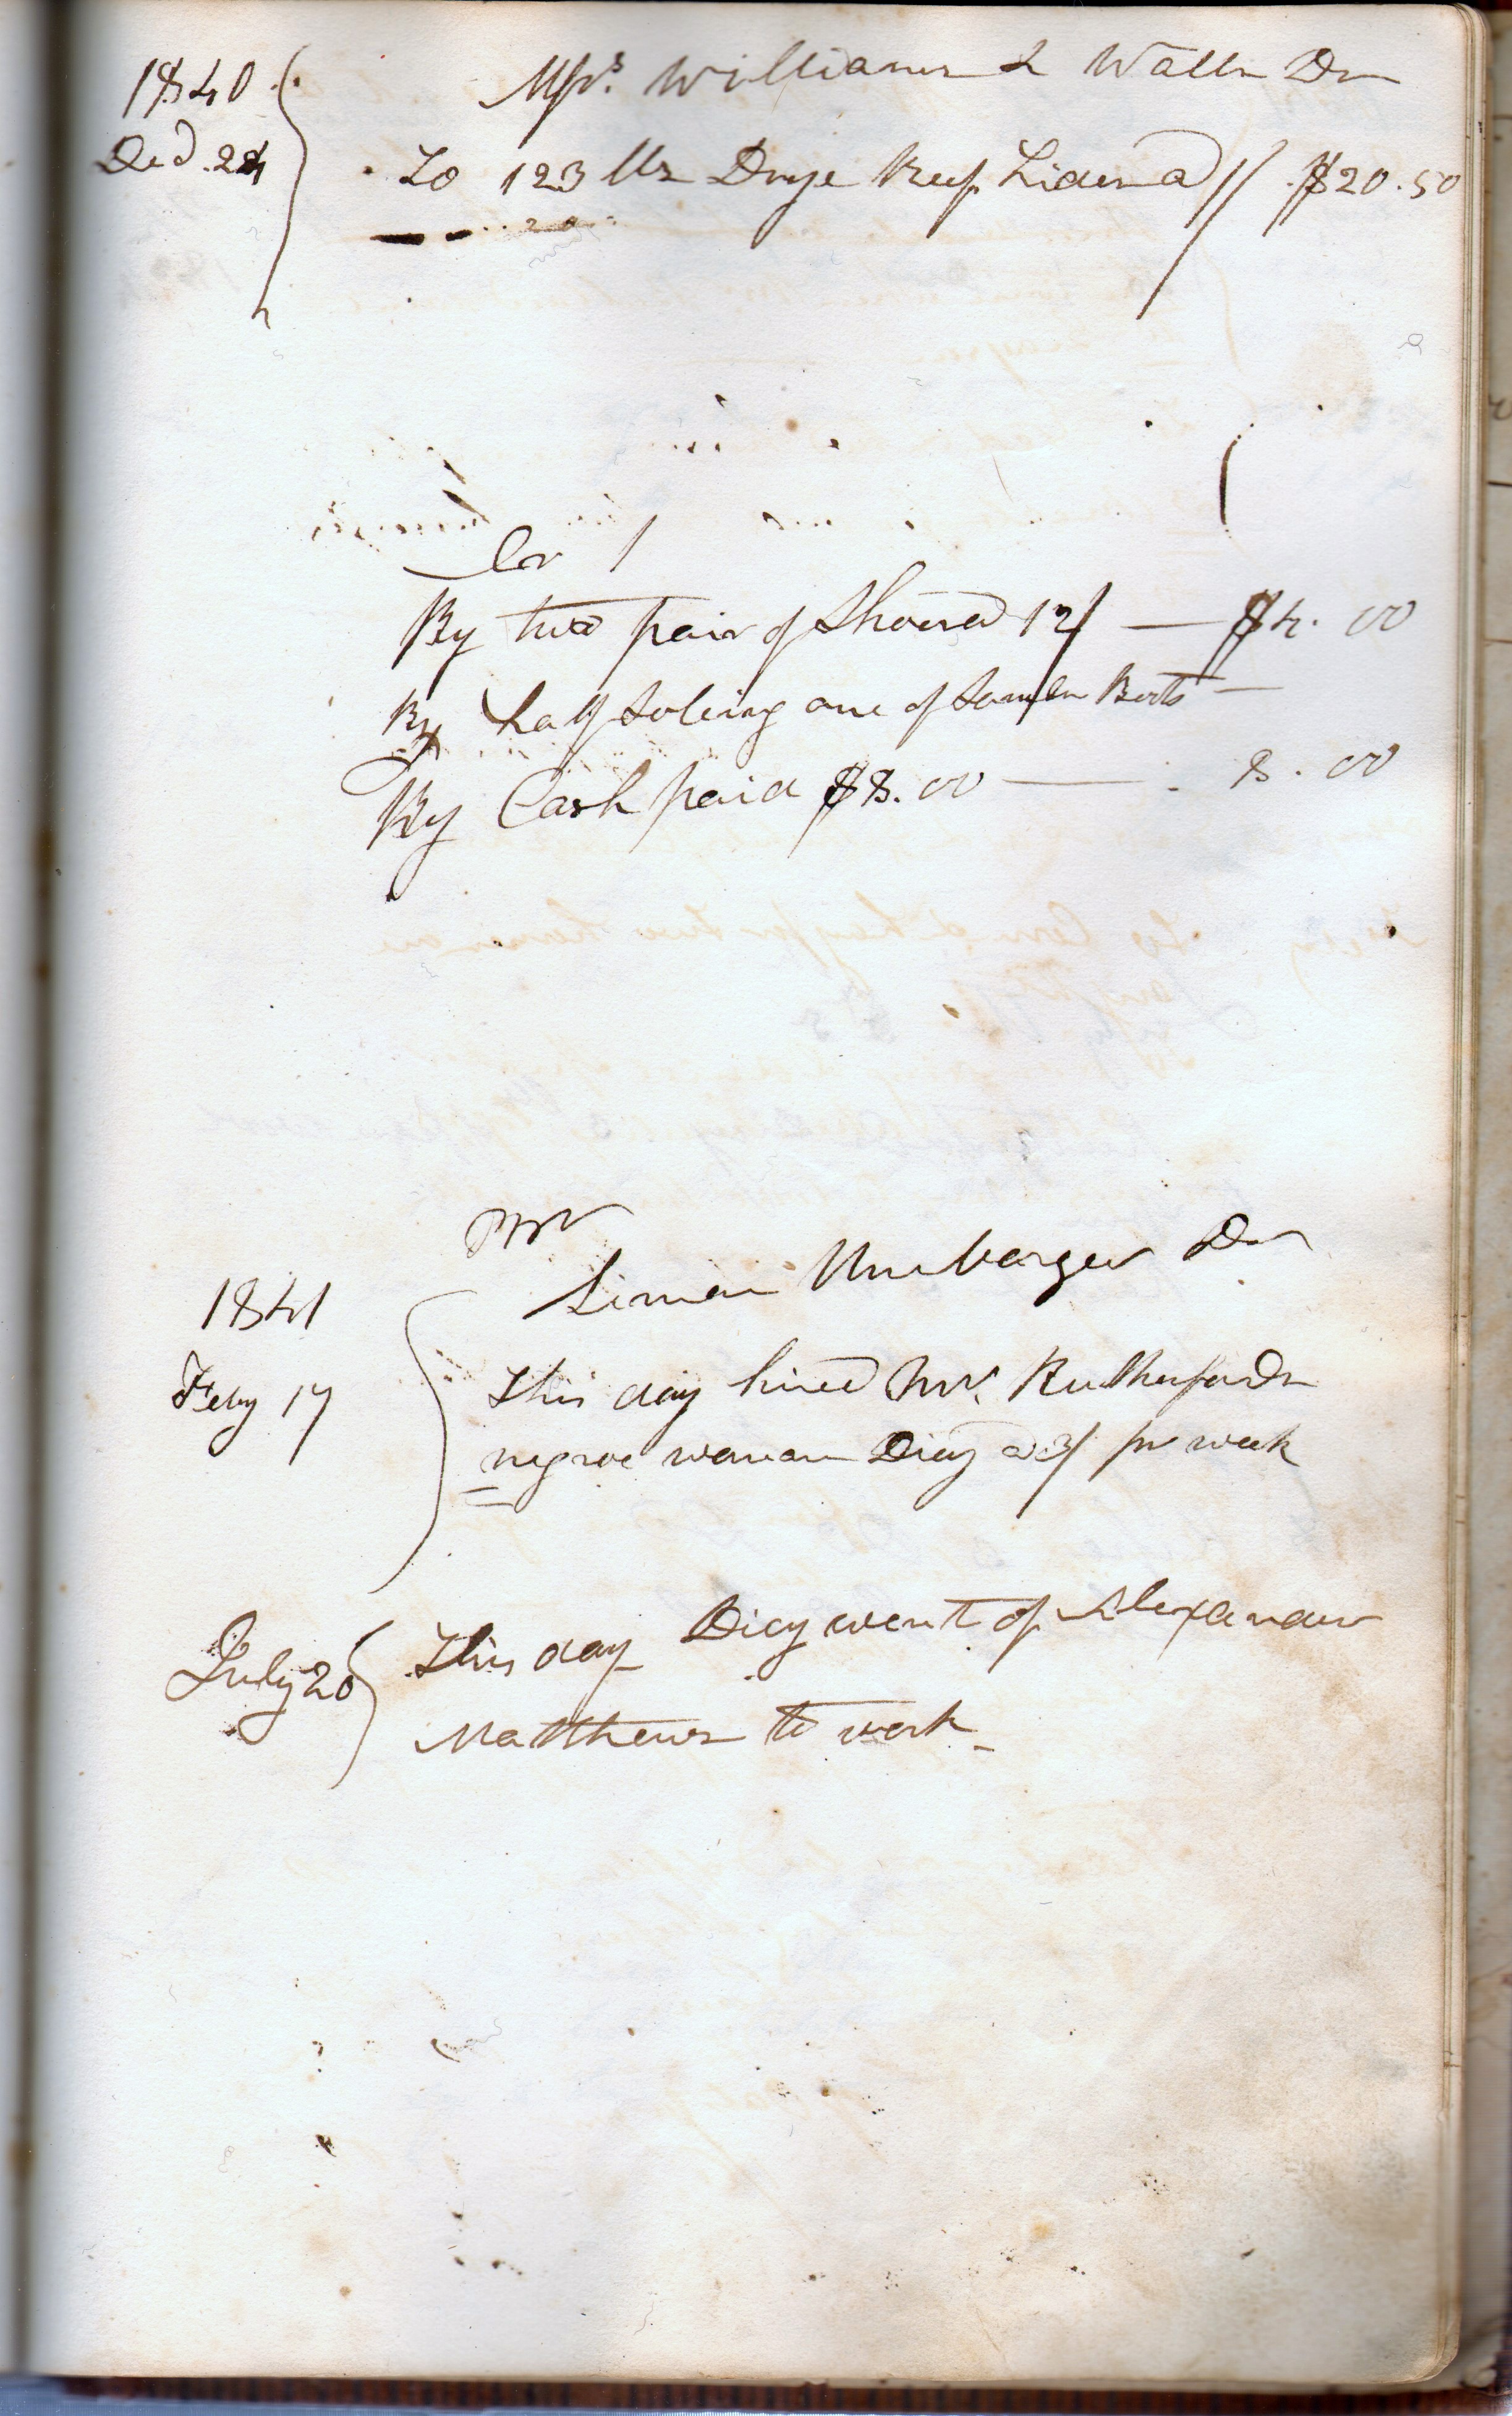 1840
Mrs. Williams & Walls Dr
Decd. 24
To 123 lbs Drye Beef hides @ 1/ $20.50
Cr
By two pair of Shoes @ 12/ — $4.00
By half Soleing one of Boots —
By Cash paid $8.00 — 8.00
Mr
1841
Simon Umbarger Dr
Feby 17
This day hired Mr. Rutherfords
negroe woman Dicy @ 3/ pr week
July 26
This day Dicy went of Alexander
Matthews to work